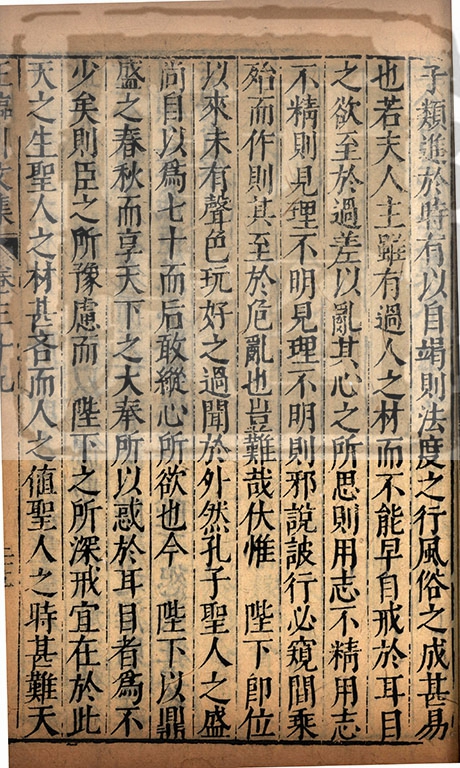 子類進於時有以自竭則法度之行風俗之成甚易
也若夫人主雖有過人之材而不能早自戒於耳目
之欲至於過差以亂其心之所思則用志不精用志
不精則見理不明見理不明則邪說詖行必窺間乘
殆而作則其至於危亂也豈難哉伏惟 陛下即位
以來未有聲色玩好之過聞於外然孔子聖人之盛
尚自以爲七十而后敢縱心所欲也今 陛下以鼎
盛之春秋而享天下之大奉所以惑於耳目者爲不
少矣則臣之所豫慮而 陛下之所深戒宜在於此
天之生聖人之材甚吝而人之值聖人之時甚難天
王臨川文集 卷三十九